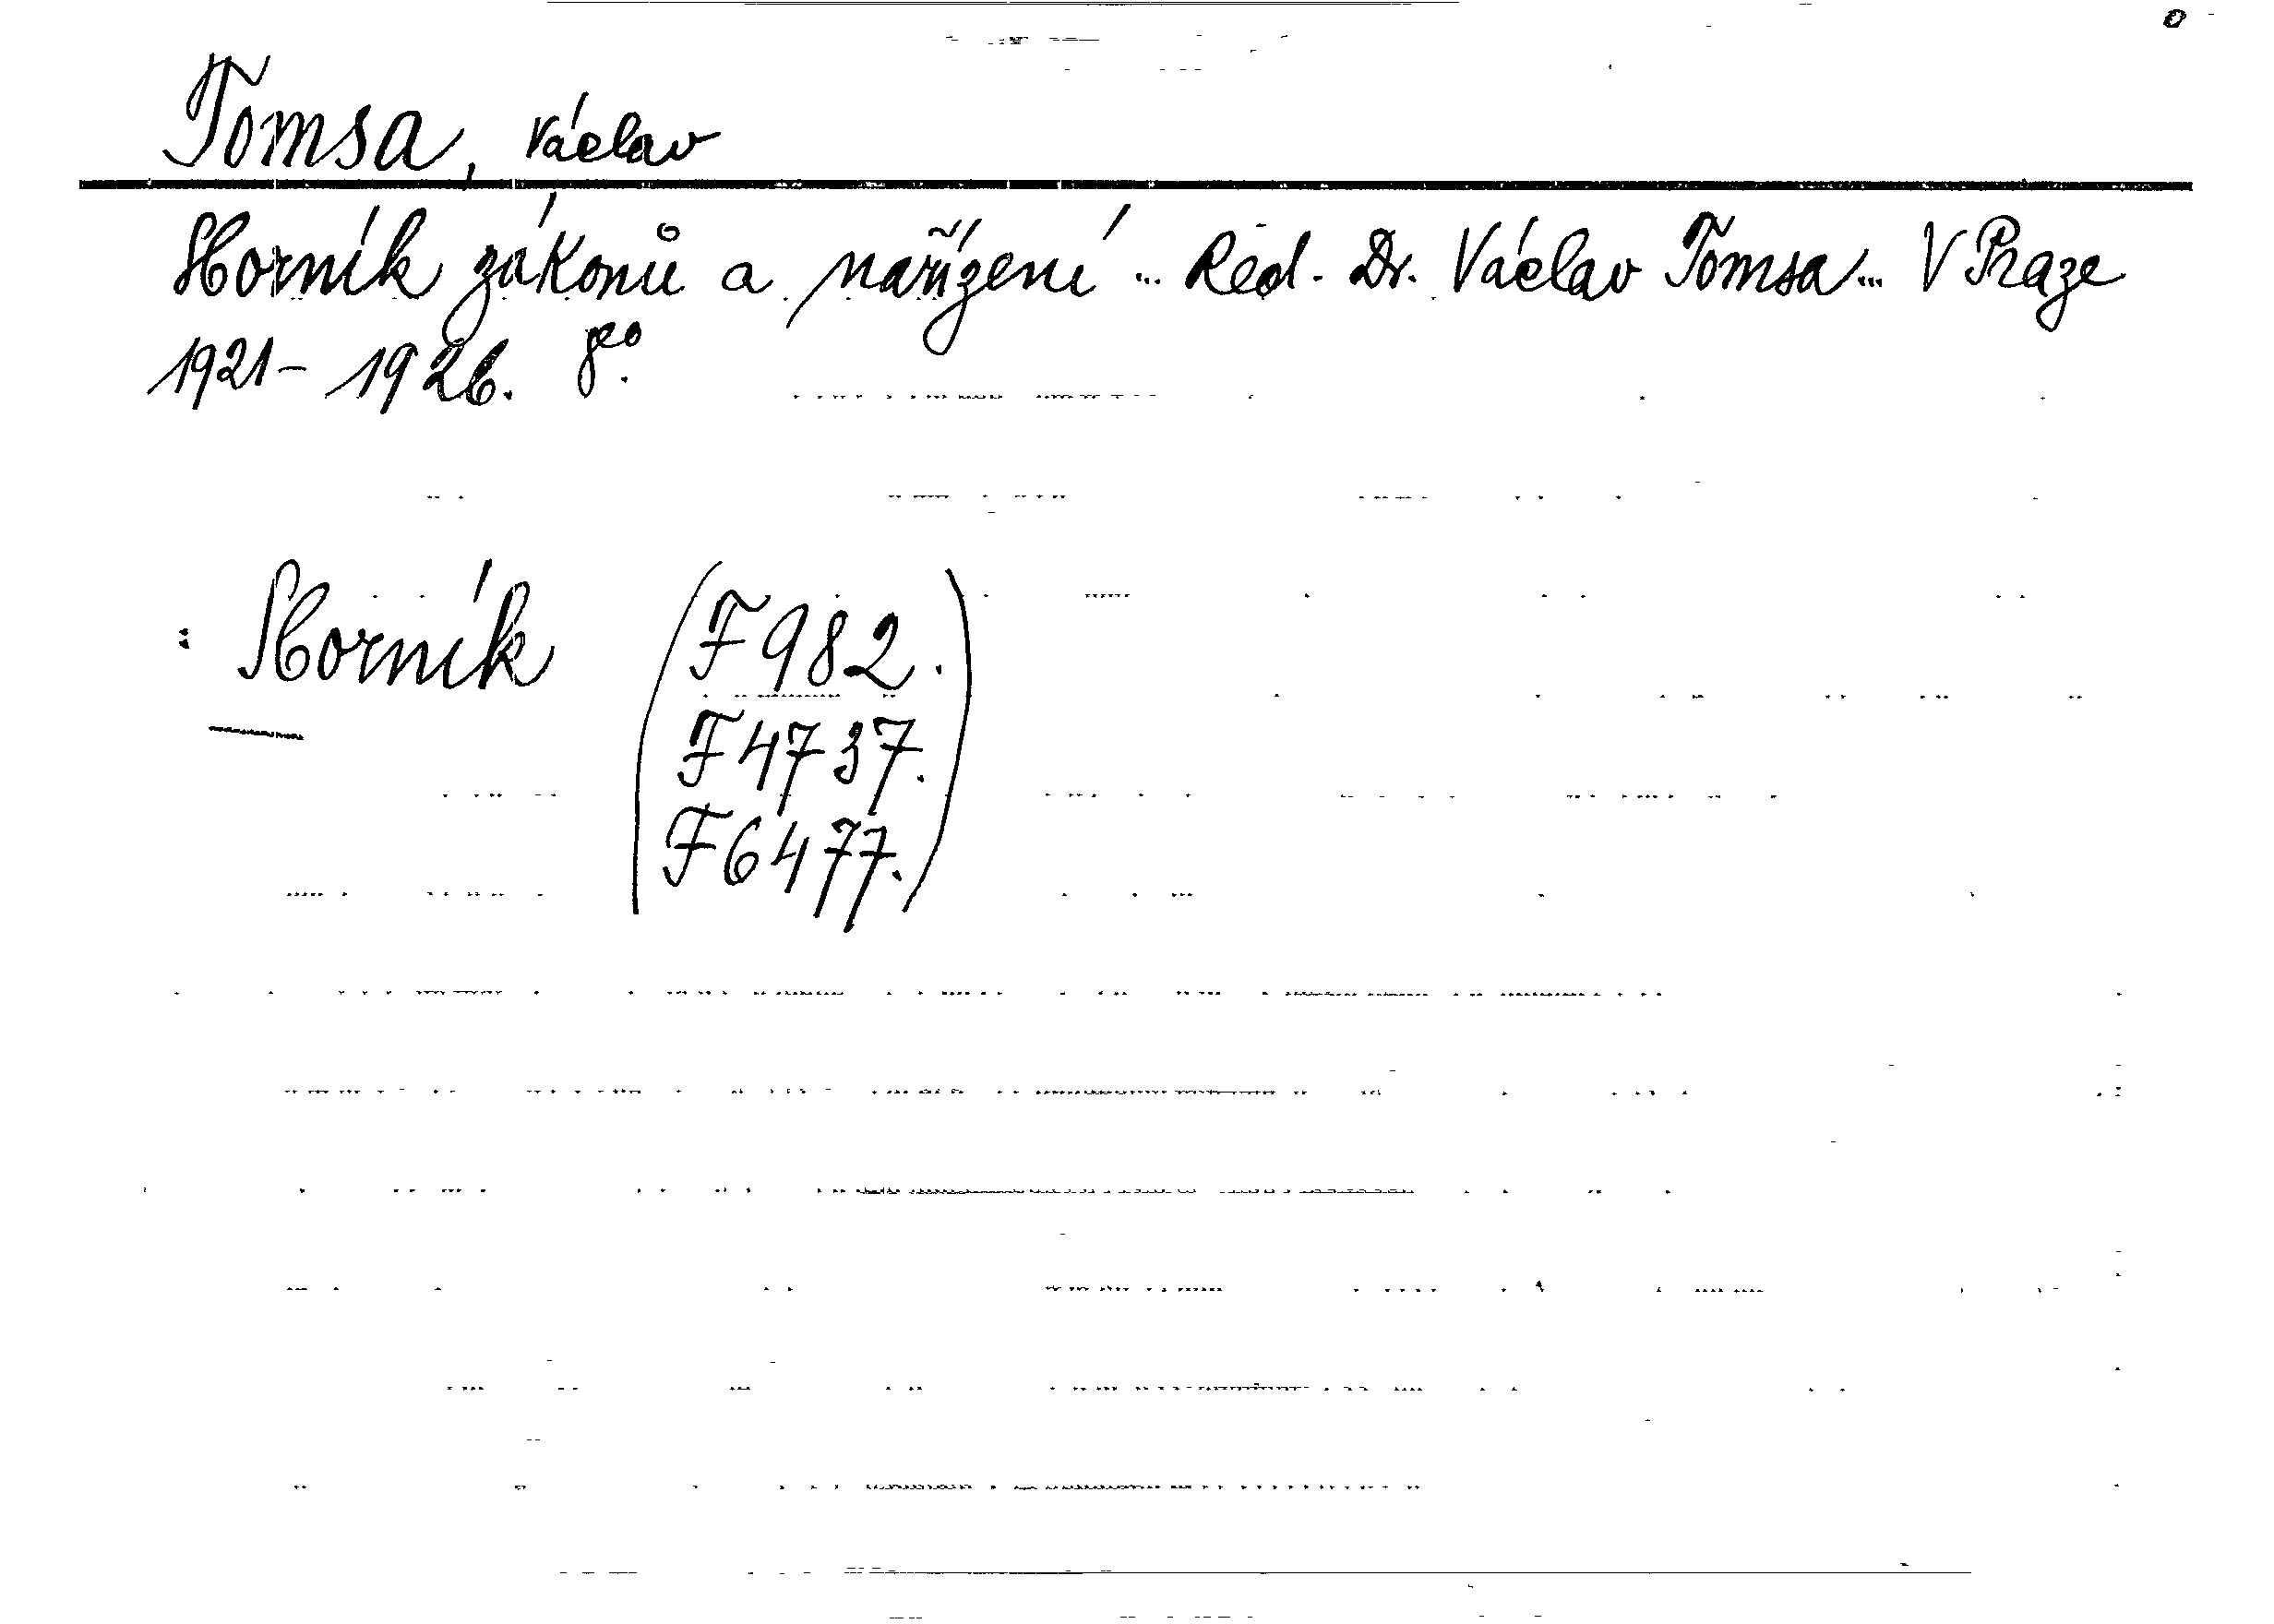 Tomsa, Václav
Sborník zákonů a nařízení ... Red. Dr. Václav Tomsa ... V Praze
1921 - 1926. 8°.
: Sborník (F 982.
F 4737.
F 6477.)